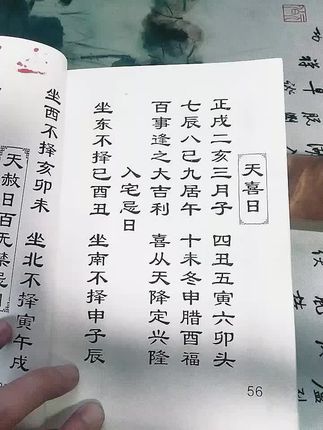 天喜日
正戌二亥三月子 四丑五寅六卯头
七辰八巳九居午 十未冬申腊酉福
百事逢之大吉利 喜从天降定兴隆
入宅忌日
坐东不择巳酉丑 坐南不择申子辰
坐西不择亥卯未 坐北不择寅午戌
天赦日百无禁忌
56